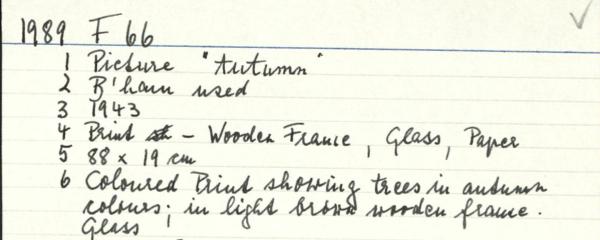 1989 F 66
1 Picture "Autumn"
2 B'ham used
3 1943
4 Print - Wooden Frame, Glass, Paper
5 88 x 19 cm
6 Coloured Print showing trees in autumn
colours; in light brown wooden frame.
Glass